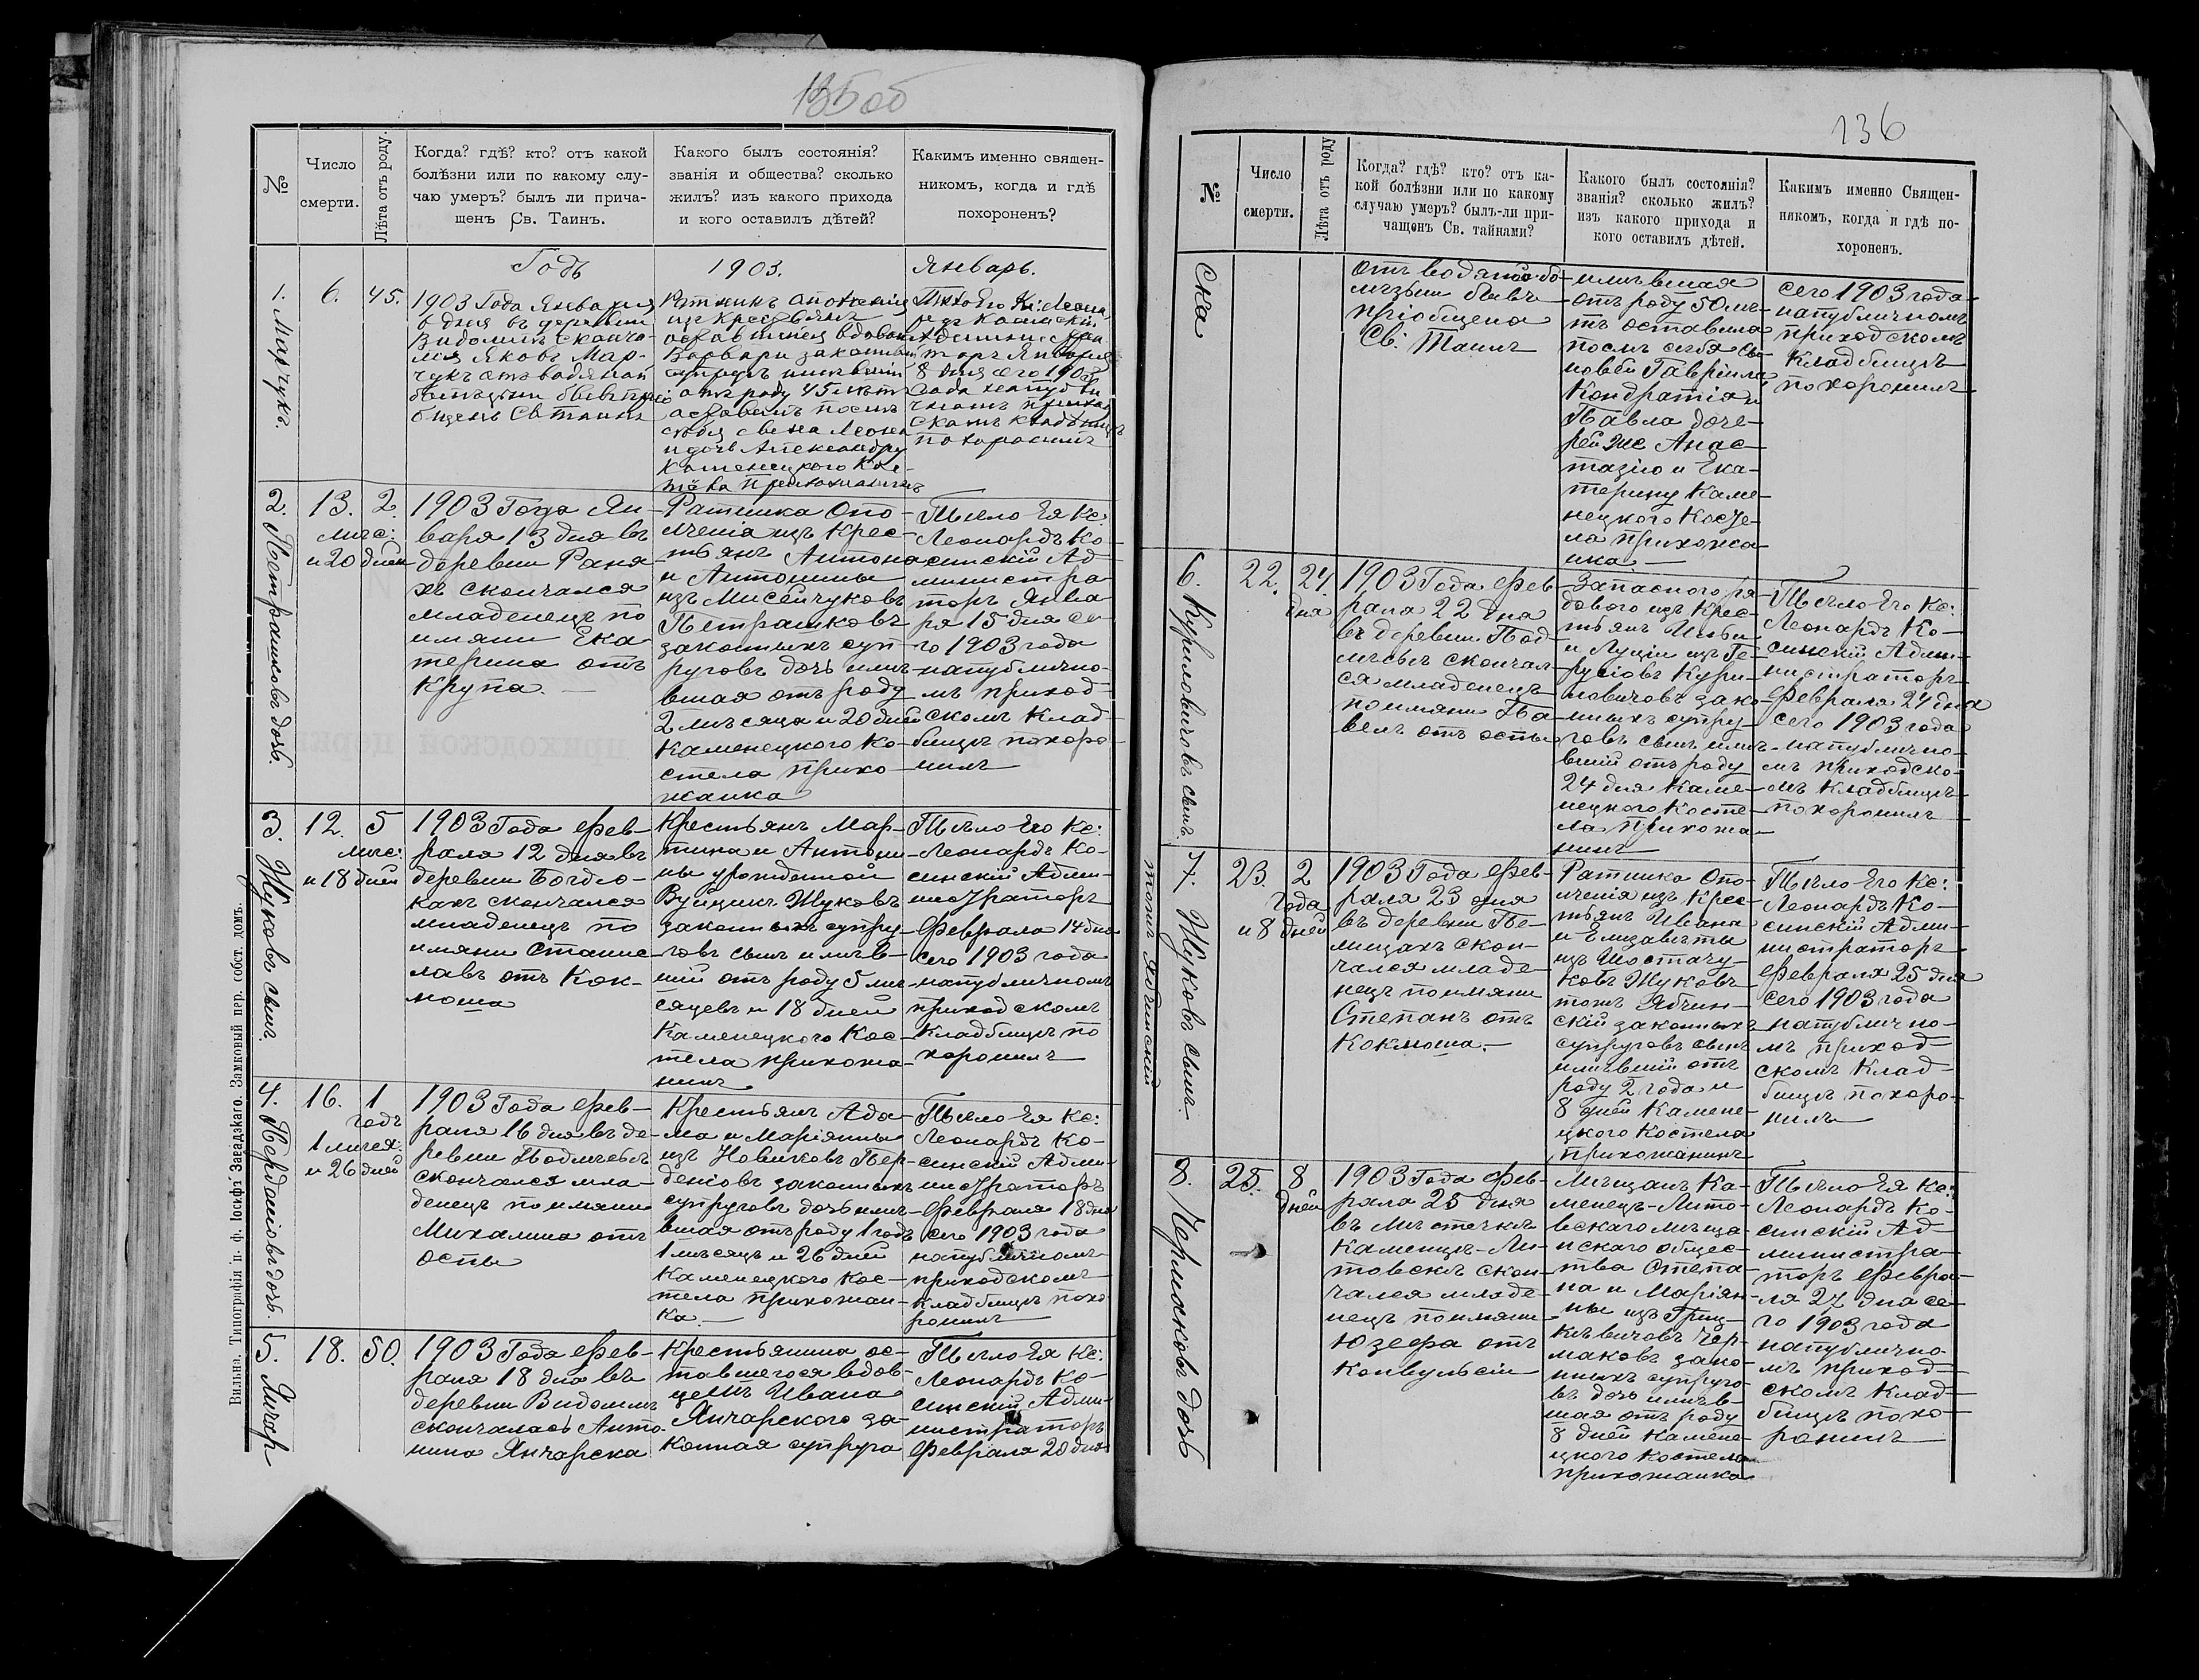 135 об
№
Число
смерти.
Лѣта отъ роду.
Когда? гдѣ? кто? отъ какой
болѣзни или по какому слу-
чаю умеръ? былъ ли прича-
щенъ Св. Таинъ.
Какого былъ состоянія?
званія и общества? сколько
жилъ? изъ какого прихода
и кого оставилъ дѣтей?
Какимъ именно священ-
никомъ, когда и гдѣ
похороненъ?
Годъ
1903.
Январь.
1. Марчукъ.
6.
45.
1903 Года Января
6 дня въ деревни
Видомль сконча-
лся Яковъ Мар-
чукъ отъ водяной
болѣзни бывъ прі
общенъ Св Таинъ
Ратникъ ополченія
изъ крестьянъ
оставшейся вдовою
Варвары законный
супругъ имѣвшій
отъ роду 45 лѣтъ
оставилъ послѣ
себя сына Леона
и дочь Александру
Каменецкого Кос-
тёла Прихожанинъ
Тѣло Его Кс: Леона
рдъ Косинскій
Администра
торъ Января
8 дня сего 1903
года на публи
чномъ приход
скомъ кладбищѣ
похоронилъ
2. Петрашковъ дочь.
13.
2.
мѣс:
и 20 дней
1903 Года Ян-
варя 13 дня въ
деревни Раня-
хъ скончался
младенецъ по
имяни Ека
терина отъ
Крупа.
Ратника Опо-
лченія изъ Крес-
тьянъ Антона
и Антонины
изъ Мисейчуковъ
Петрашковъ
законныхъ суп-
руговъ дочь имѣ-
вшая отъ роду
2 мѣсяца и 20 дней
Каменецкого Ко-
стела прихо-
жанка
Тѣло Ея Кс:
Леонардъ Ко-
синскій Ад-
министра
торъ Янва
ря 15 дня се
го 1903 года
на публично-
мъ приход-
скомъ Клад-
бищѣ похоро-
нилъ
3. Жуковъ сынъ.
12.
5
мѣс:
и 18 дней
1903 Года Фев-
раля 12 дня въ
деревни Богдю-
кахъ скончался
младенецъ по
имяни Станис-
лавъ отъ Кок-
люша
Крестьянъ Мар-
тина и Антони-
ны урожденной
Вуйцикъ Жуковъ
законныхъ супру-
говъ сынъ имѣв-
шій отъ роду 5 мѣ-
сяцевъ и 18 дней
Каменецкого Кос-
тела прихожа-
нинъ
Тѣло Его Кс:
Леонардъ Ко-
синскій Адми-
нистраторъ
Февраля 14 дня
сего 1903 года
на публичномъ
приходскомъ
Кладбищѣ по
хоронилъ
4. Перденіовъ дочь.
16.
1
годъ
1 мѣсяц:
и 26 дней
1903 Года Фев-
раля 16 дня въ де-
ревни Подлѣсьѣ
скончался мла-
денецъ по имяни
Михалина отъ
оспы
Крестьянъ Ада-
ма и Маріянны
изъ Новиковъ Пер-
деніовъ законныхъ
супруговъ дочь имѣ-
вшая отъ роду 1 годъ
1 мѣсяцъ и 26 дней
Каменецкого Кос-
тела прихожан-
ка.
Тѣло Ея Кс:
Леонардъ Ко-
синскій Адми-
нистраторъ
Февраля 18 дня
сего 1903 года
на публичномъ
приходскомъ
кладбищѣ похо-
ронилъ
5. Янчар
18.
50.
1903 Года Фев-
раля 18 дня въ
деревни Видомлѣ
скончалась Анто-
нина Янчарска
Крестьянина ос-
тавшегося вдов-
цемъ Ивана
Янчарского за-
конная супруга
Тѣло Ея Кс:
Леонардъ Ко-
синскій Адми-
нистраторъ
Февраля 20 дня
Вильна. Типографія п. ф. Іосифъ Завадзкаго. Замковый пер. собст. домъ.
136
№
Число
смерти.
Лѣта отъ роду
Когда? гдѣ? кто? отъ ка-
кой болѣзни или по какому
случаю умеръ? былъ-ли при-
чащонъ Св. тайнами?
Какого былъ состоянія?
званія? сколько жилъ?
изъ какого прихода и
кого оставилъ дѣтей.
Какимъ именно Священ-
никомъ, когда и гдѣ по-
хороненъ.
ска
отъ водяной бо-
лѣзни бывъ
пріобщена
Св: Таинъ
имѣвшая
отъ роду 50 лѣ-
тъ оставила
послѣ себя сы-
новей Гавріила
Кондратія и
Павла доче-
рей же Анас-
тазію и Ека-
терину Каме-
нецкого Косте-
ла прихожа-
нка.
сего 1903 года
на публичномъ
приходскомъ
Кладбищѣ
похоронилъ
6. Куриловичовъ сынъ.
22.
24.
дня
1903 Года Фев
раля 22 дня
въ деревни Под-
лѣсьѣ скончал-
ся младенецъ
по имяни Па-
велъ отъ оспы
Запасного ря-
дового изъ Крес-
тьянъ
и Луціи изъ Ге-
русіовъ Кури-
ловичовъ зако-
нныхъ супру-
говъ сынъ имѣ-
вшій отъ роду
24 дня Каме-
нецкого Косте-
ла прихожа-
нинъ
Тѣло Его Кс:
Леонардъ Ко-
синскій Адми-
нистраторъ
Февраля 24 дня
сего 1903 года
на публично-
мъ приходско-
мъ Кладбищѣ
похоронилъ
7. Жуковъ сынъ
тожъ Ябчинскій
23.
2
года
и 8 дней
1903 Года Фев-
раля 23 дня
въ деревни Пе-
лищахъ скон-
чался младе-
нецъ по имяни
Степанъ отъ
Коклюша.
Ратника Опо-
лченія изъ Крес-
тьянъ Ивана
и Елизаветы
изъ Шостачу-
ковъ Жуковъ
тожъ Ябчин-
скій законныхъ
супруговъ сынъ
имѣвшій отъ
роду 2 года и
8 дней Камене-
цкого Костела
прихожанинъ
Тѣло Его Кс:
Леонардъ Ко-
синскій Адми-
нистраторъ
Февраля 25 дня
сего 1903 года
на публично-
мъ приход-
скомъ Клад-
бищѣ похоро-
нилъ
8. Чермаковъ дочь
25.
8
дней
1903 Года Фев-
раля 25 дня
въ мѣстечкѣ
Каменцѣ-Ли-
товскѣ скон-
чался младе-
нецъ по имяни
Юзефа отъ
Конвульсіи
Мѣщанъ Ка-
менецъ-Лито-
вскаго мѣща-
нскаго общес-
тва Степа-
на и Маріян-
ны изъ Гриц-
кѣвичовъ Чер-
маковъ зако-
нныхъ супруго-
въ дочь имѣв-
шая отъ роду
8 дней Камене-
цкого Костела
прихожанка
Тѣло Ея Кс:
Леонардъ Ко-
синскій Ад-
министра-
торъ Февра-
ля 27 дня се-
го 1903 года
на публично-
мъ приход-
скомъ Клад-
бищѣ похо-
ронилъ